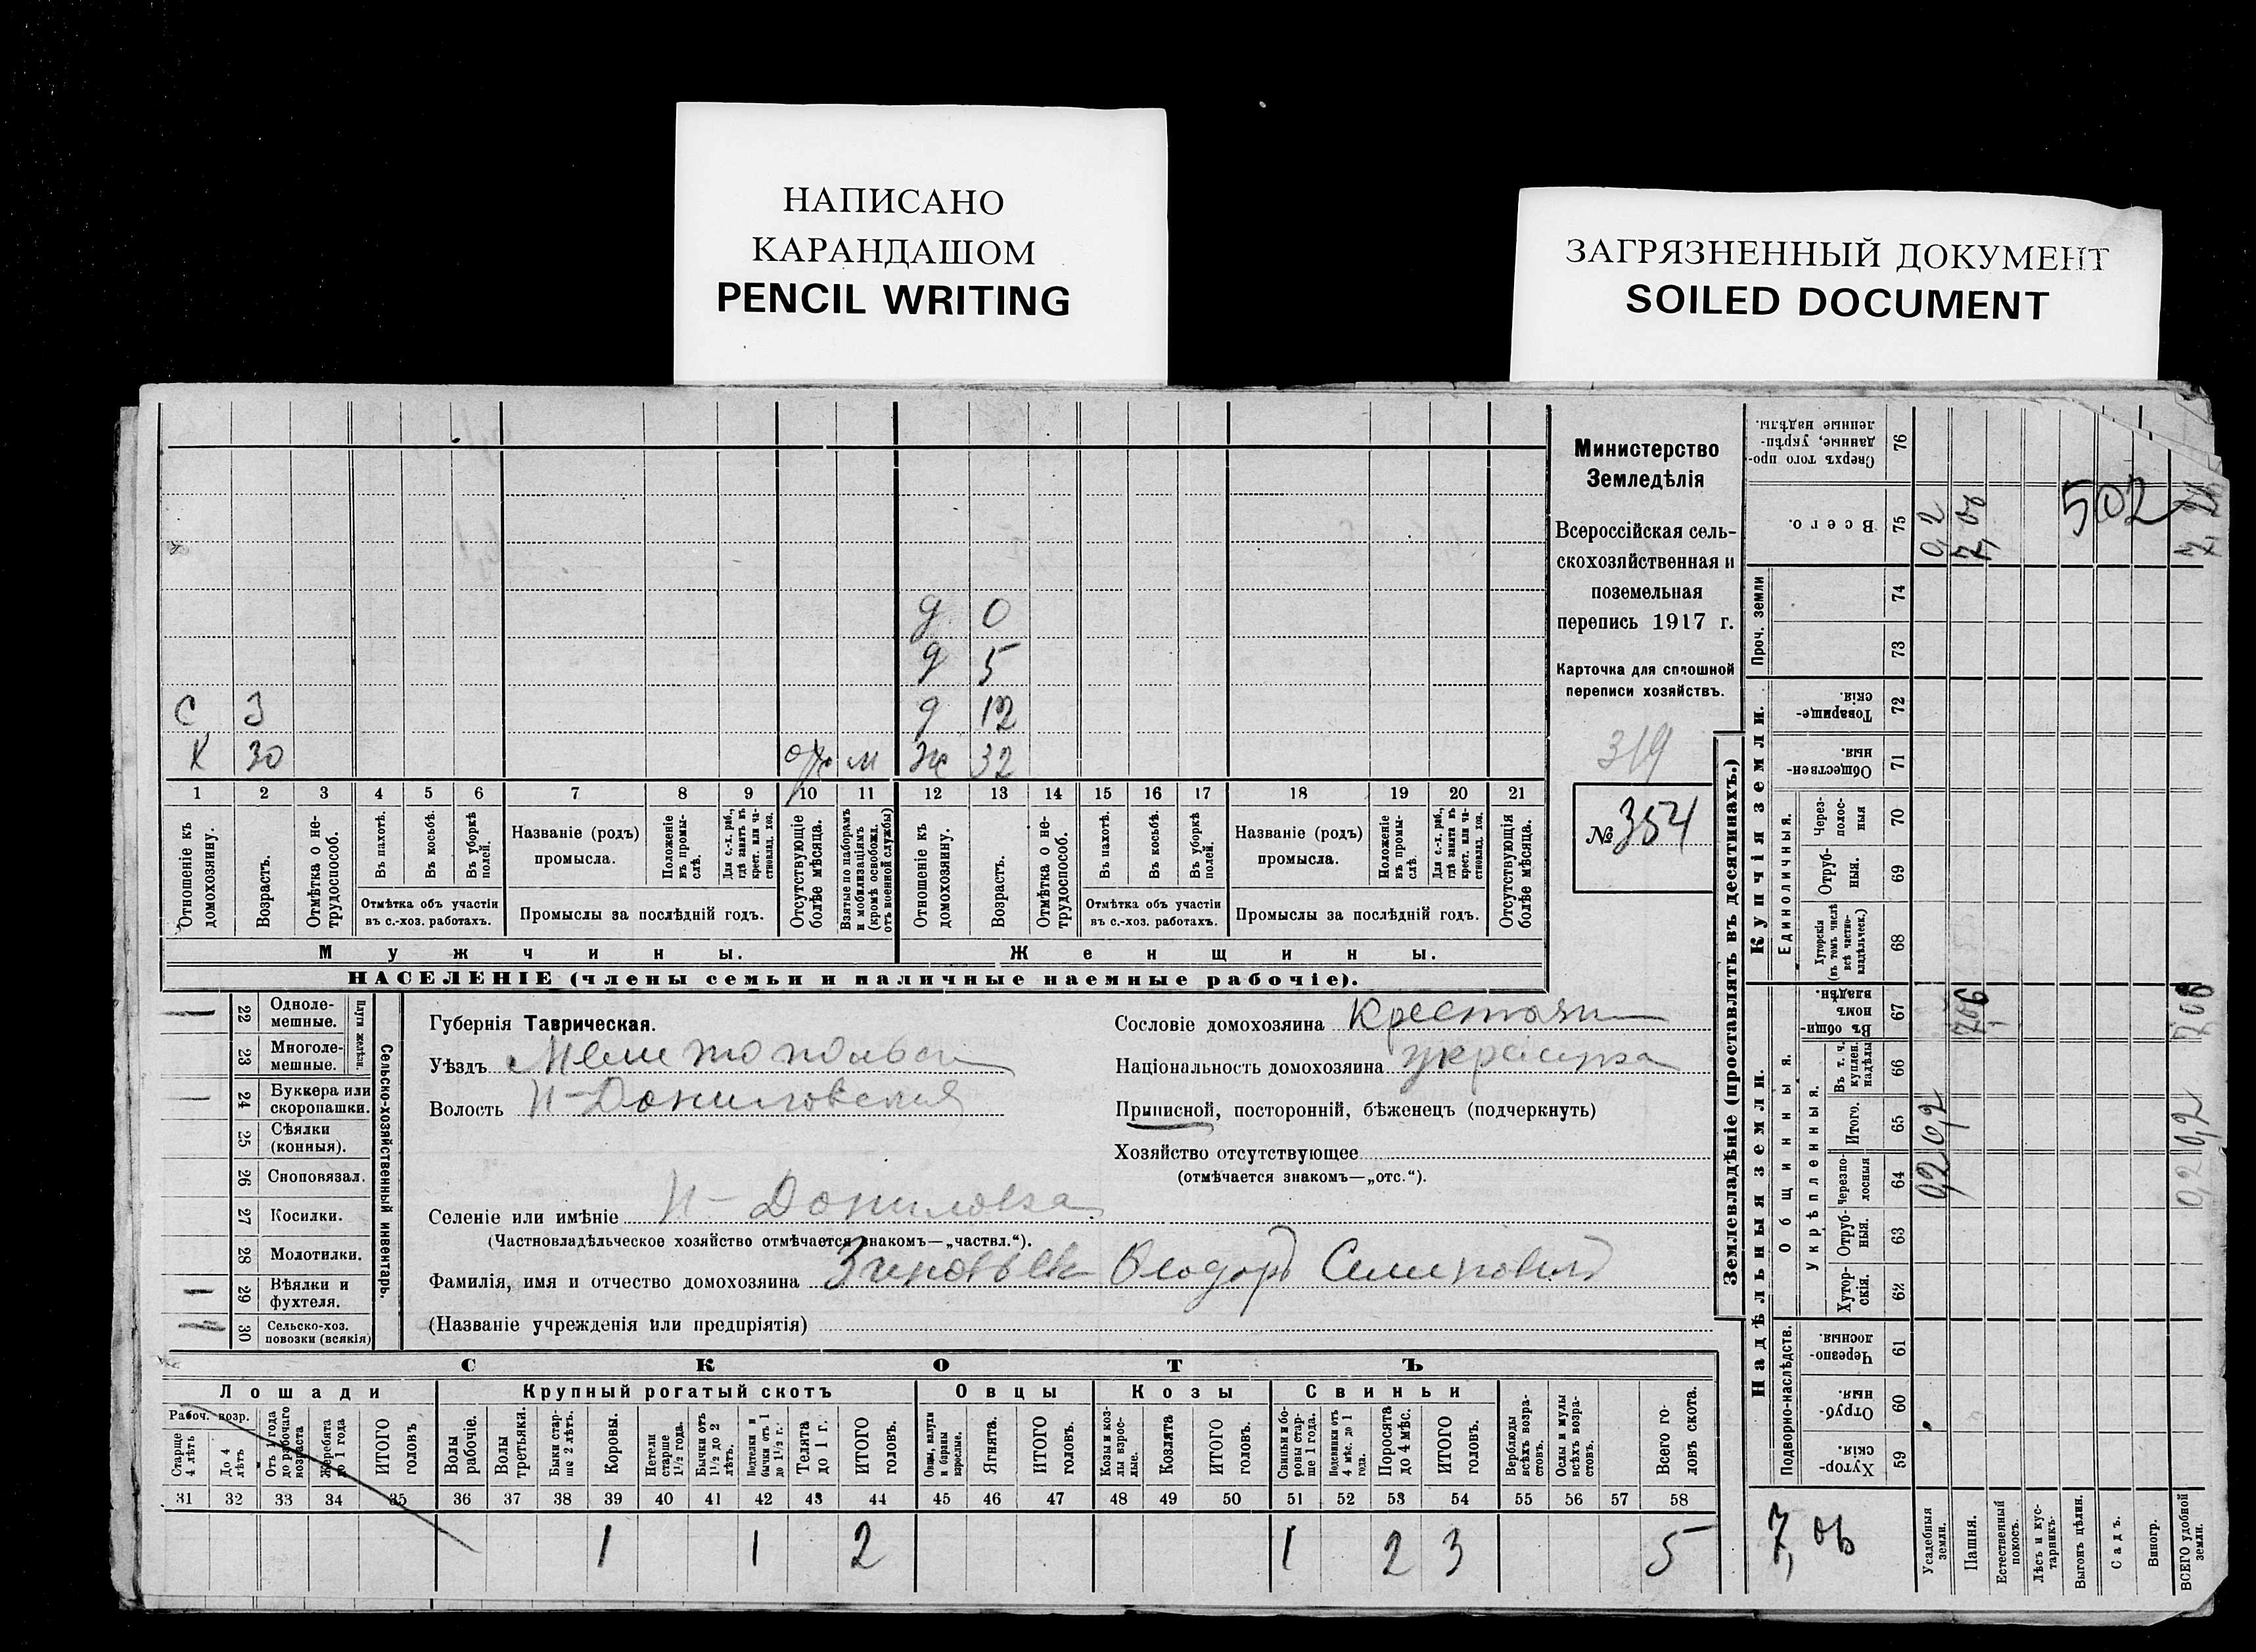 НАПИСАНО
КАРАНДАШОМ
PENCIL WRITING
ЗАГРЯЗНЕННЫЙ ДОКУМЕНТ
SOILED DOCUMENT
д 0
д 5
С 3 д 12
Х 30 м ж 32
1 2 3 4 5 6 7 8 9 10 11 12 13 14 15 16 17 18 19 20 21
Отношеніе къ домохозяину.
Возрастъ.
Отмѣтка о нетрудоспособ.
Въ пахотѣ.
Въ косьбѣ.
Въ уборкѣ полей.
Отмѣтка объ участіи
въ с.-хоз. работахъ.
Названіе (родъ)
промысла.
Положеніе въ промыслѣ.
Для с.-х. раб., гдѣ занятъ въ крест. или частновлад. хоз.
Промыслы за послѣдній годъ.
Отсутствующіе болѣе мѣсяца.
Взятые по наборамъ и мобилизаціямъ (кромѣ освобожд. отъ военной службы)
Отношеніе къ домохозяину.
Возрастъ.
Отмѣтка о нетрудоспособ.
Въ пахотѣ.
Въ косьбѣ.
Въ уборкѣ полей.
Отмѣтка объ участіи
въ с.-хоз. работахъ.
Названіе (родъ)
промысла.
Положеніе въ промыслѣ.
Для с.-х. раб., гдѣ занятъ въ крест. или частновлад. хоз.
Промыслы за послѣдній годъ.
Отсутствующія болѣе мѣсяца.
Мужчины.
Женщины.
НАСЕЛЕНІЕ (члены семьи и наличные наемные рабочіе).
Министерство
Земледѣлія
Всероссійская сель-
скохозяйственная и
поземельная
перепись 1917 г.
Карточка для сплошной
переписи хозяйствъ.
319
№ 354
Сельско-хозяйственный инвентарь.
Плуги желѣзн.
22 Одноле-
мешные.
23 Многоле-
мешные.
24 Буккера или
скоропашки.
25 Сѣялки
(конныя).
26 Сноповязал.
27 Косилки.
28 Молотилки.
29 Вѣялки и
фухтеля.
30 Сельско-хоз.
повозки (всякія)
Губернія Таврическая.
Уѣздъ
Волость Н-Даниловская
Селеніе или имѣніе Н-Даниловка
(Частновладѣльческое хозяйство отмѣчается знакомъ—„частвл.“).
Фамилія, имя и отчество домохозяина Феодоръ
(Названіе учрежденія или предпріятія)
Сословіе домохозяина
Національность домохозяина
Приписной, посторонній, бѣженецъ (подчеркнуть)
Хозяйство отсутствующее
(отмѣчается знакомъ—„отс.“).
СКОТЪ
Лошади
Крупный рогатый скотъ
Овцы
Козы
Свиньи
Рабоч. возр.
Старше 4 лѣтъ
До 4 лѣтъ
Отъ 1 года до рабочаго возраста
Жеребята до 1 года
ИТОГО головъ
Волы рабочіе.
Волы третьяки.
Быки старше 2 лѣтъ.
Коровы.
Нетели старше 1½ года.
Бычки отъ 1½ до 2 лѣтъ.
Подтелки и бычки отъ 1 до 1½ г.
Телята до 1 г.
ИТОГО головъ.
Овцы, валухи и бараны взрослые.
Ягнята.
ИТОГО головъ.
Козы и козлы взрослые.
Козлята
ИТОГО головъ.
Свиньи и боровы старше 1 года.
Подсвинки отъ 4 мѣс. до 1 года.
Поросята до 4 мѣс.
ИТОГО головъ.
Верблюды всѣхъ возрастовъ.
Ослы и мулы всѣхъ возрастовъ.
Всего головъ скота.
31 32 33 34 35 36 37 38 39 40 41 42 43 44 45 46 47 48 49 50 51 52 53 54 55 56 57 58
1 1 2 1 2 3 5
Землевладѣніе (проставлять въ десятинахъ.)
Купчія земли.
Надѣльныя земли.
Проч. земли
Единоличныя.
Общинныя.
Укрѣпленныя.
Подворно-наслѣдств.
76 Сверхъ того проданные, укрѣпленные надѣлы.
75 Всего.
74
73
72 Товарищескія.
71 Общественныя.
70 Черезполосныя
69 Отрубныя.
68 Хуторскія (въ томъ числѣ всѣ частновладѣльческ.)
67 Въ общинномъ владѣн.
66 Въ т. ч. куплен. надѣлы
65 Итого.
64 Черезполосныя
63 Отрубныя.
62 Хуторскія.
61 Черезполосныя.
60 Отрубныя.
59 Хуторскія.
Усадебныя земли.
Пашня.
Естественный покосъ.
Лѣсъ и кустарникъ.
Выгонъ цѣлин.
Садъ.
Виногр.
ВСЕГО удобной земли.
0,2
502
0,2 0,2
0,2 0,2